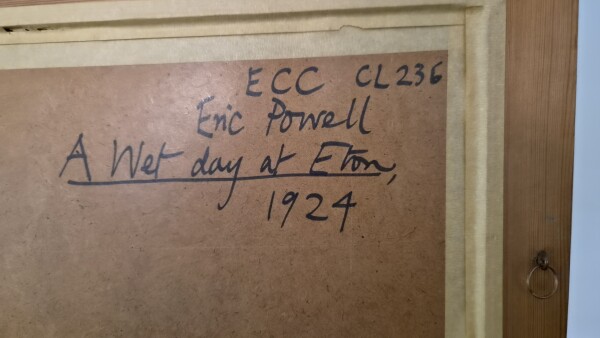 ECC CL 236
Eric Powell
A Wet day at Eton,
1924